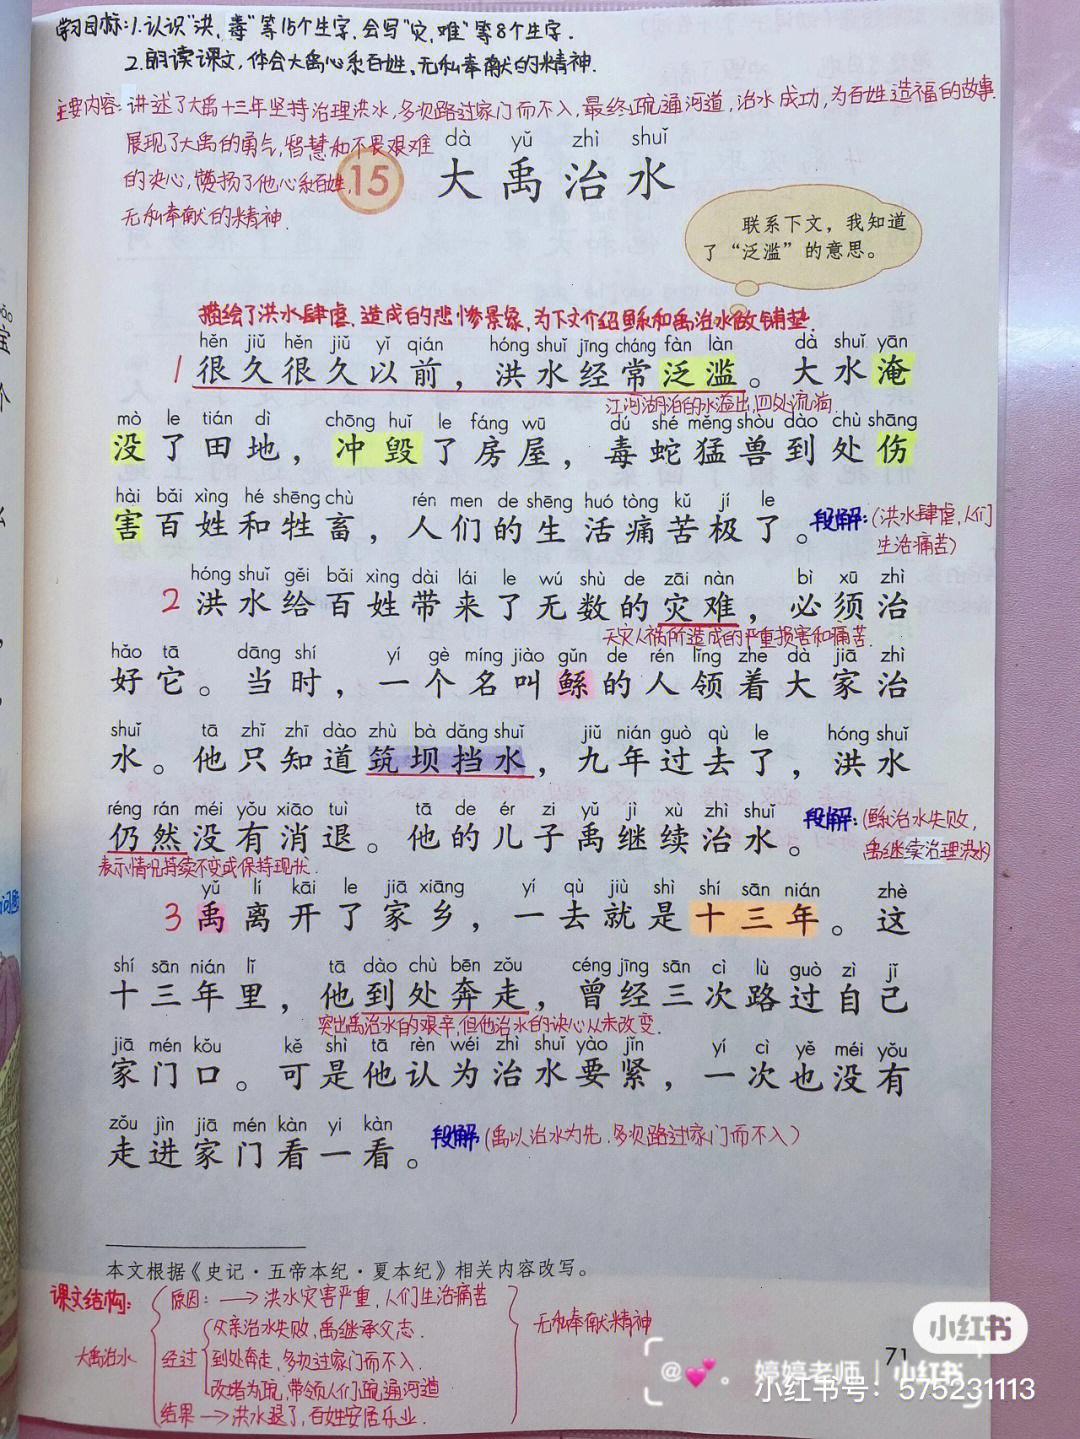 学习目标:1.认识“洪、毒”等15个生字,会写“灾、难”等8个生字.
2.朗读课文,体会大禹心系百姓、无私奉献的精神.
主要内容:讲述了大禹十三年坚持治理洪水,多次路过家门而不入,最终疏通河道,治水成功,为百姓造福的故事.
展现了大禹的勇气,智慧和不畏艰难
的决心,赞扬了他心系百姓,
无私奉献的精神.
dà yǔ zhì shuǐ
15 大禹治水
联系下文,我知道
了“泛滥”的意思。
描绘了洪水肆虐,造成的悲惨景象,为下文介绍鲧和禹治水做铺垫.
hěn jiǔ hěn jiǔ yǐ qián hóng shuǐ jīng cháng fàn làn dà shuǐ yān
1 很久很久以前,洪水经常泛滥。大水淹
江河湖泊的水溢出,四处流淌.
mò le tián dì chōng huǐ le fáng wū dú shé měng shòu dào chù shāng
没了田地,冲毁了房屋,毒蛇猛兽到处伤
hài bǎi xìng hé shēng chù rén men de shēng huó tòng kǔ jí le
害百姓和牲畜,人们的生活痛苦极了。
段解:(洪水肆虐,人们
生活痛苦)
hóng shuǐ gěi bǎi xìng dài lái le wú shù de zāi nàn bì xū zhì
2 洪水给百姓带来了无数的灾难,必须治
天灾人祸所造成的严重损害和痛苦.
hǎo tā dāng shí yí gè míng jiào gǔn de rén lǐng zhe dà jiā zhì
好它。当时,一个名叫鲧的人领着大家治
shuǐ tā zhǐ zhī dào zhù bà dǎng shuǐ jiǔ nián guò qù le hóng shuǐ
水。他只知道筑坝挡水,九年过去了,洪水
réng rán méi yǒu xiāo tuì tā de ér zi yǔ jì xù zhì shuǐ
仍然没有消退。他的儿子禹继续治水。
段解:(鲧治水失败,
禹继续治理洪水)
表示情况持续不变或保持现状.
yǔ lí kāi le jiā xiāng yí qù jiù shì shí sān nián zhè
3 禹离开了家乡,一去就是十三年。这
shí sān nián lǐ tā dào chù bēn zǒu céng jīng sān cì lù guò zì jǐ
十三年里,他到处奔走,曾经三次路过自己
突出禹治水的艰辛,但他治水的决心从未改变.
jiā mén kǒu kě shì tā rèn wéi zhì shuǐ yào jǐn yí cì yě méi yǒu
家门口。可是他认为治水要紧,一次也没有
zǒu jìn jiā mén kàn yi kàn
走进家门看一看。
段解(禹以治水为先,多次路过家门而不入)
本文根据《史记·五帝本纪·夏本纪》相关内容改写。
课文结构:
大禹治水
原因:→洪水灾害严重,人们生活痛苦
经过
父亲治水失败,禹继承父志.
到处奔走,多次过家门而不入.
改堵为疏,带领人们疏通河道
结果→洪水退了,百姓安居乐业.
无私奉献精神
71
小红书
@💕。婷婷老师 | 小红书
小红书号:575231113